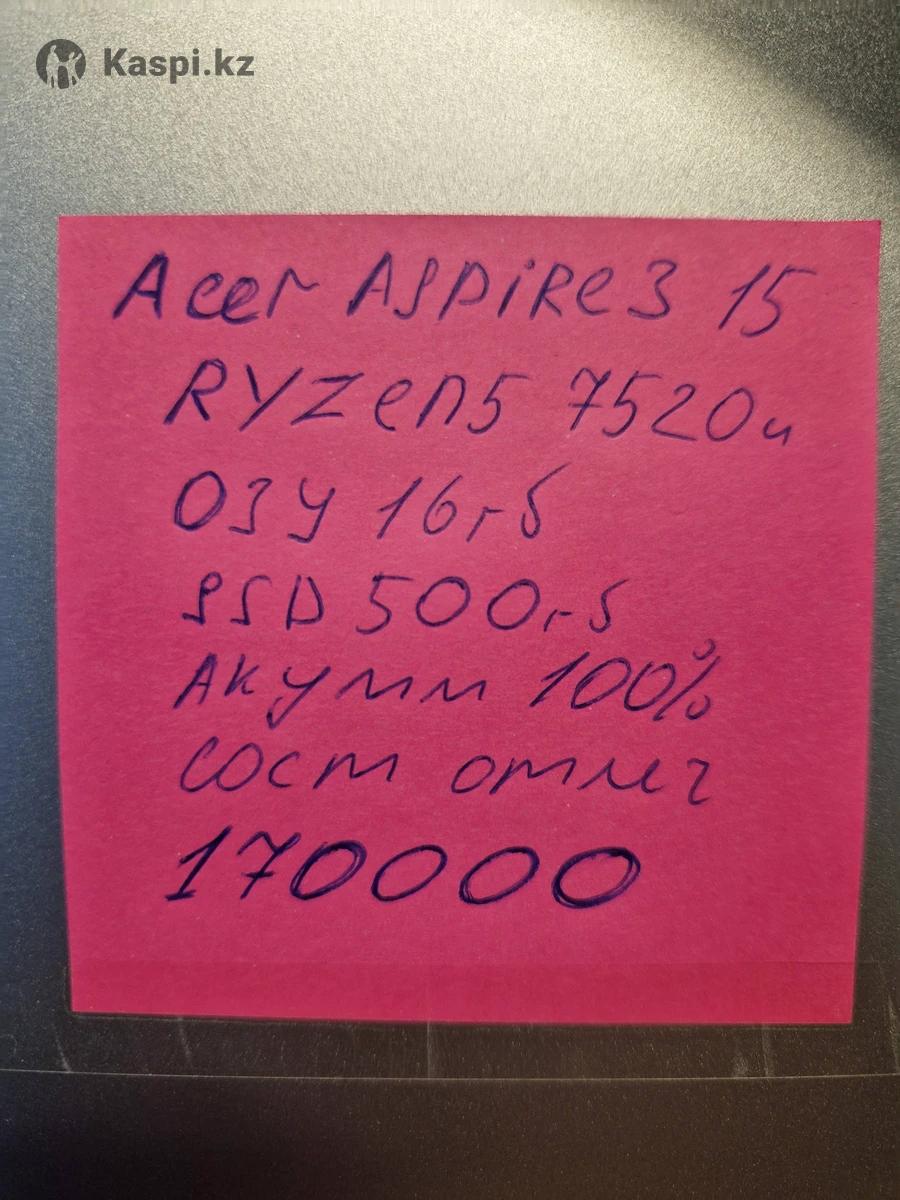 Kaspi.kz
Acer Aspire 3 15
RYZen5 7520u
ОЗУ 16гб
SSD 500гб
Акумм 100%
сост отлич
170000